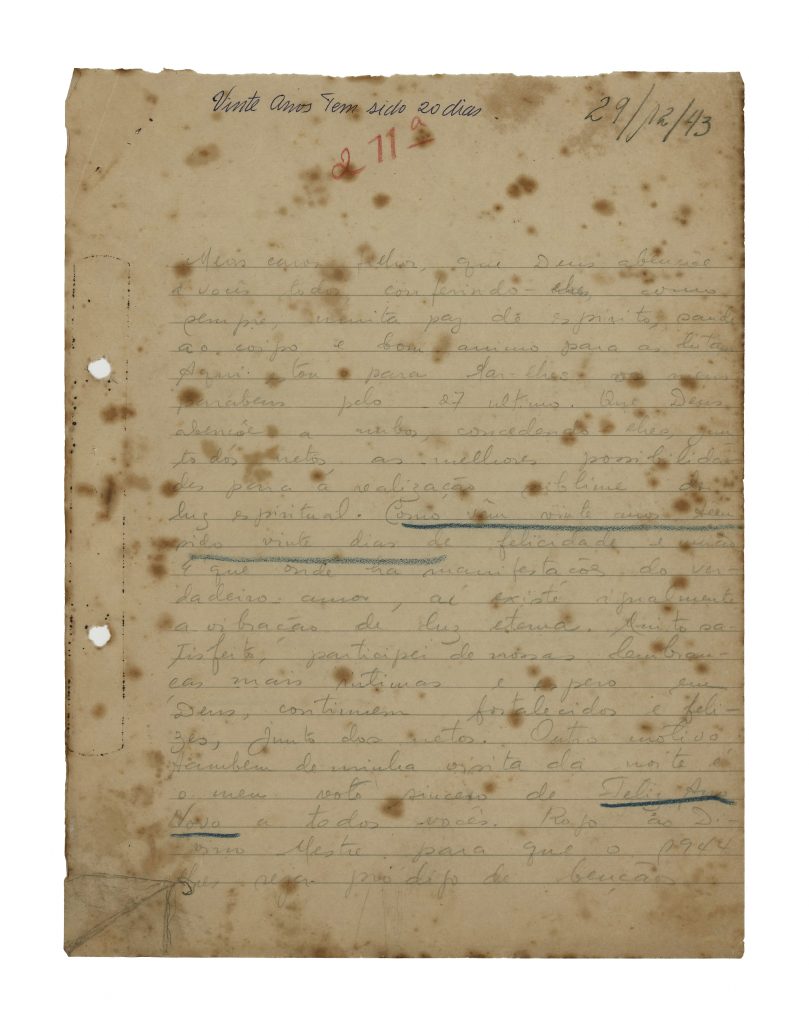 Vinte Anos Tem sido 20 dias
29/12/43
211ª
Meus caros filhos, que Deus abençõe
a vocês todos conferindo-lhes, como
sempre, muita paz de espirito, saude
ao corpo e bom animo para as lutas
Aqui estou para dar-lhes os meus
parabens pelo 27 ultimo. Que Deus
abençõe a ambos, concedendo lhes, jun
to dos netos, as melhores possibilida-
des para a realização sublime da
luz espiritual. Como vêm vinte anos tem
sido vinte dias de felicidade e união
É que onde ha manifestações do ver-
dadeiro amor, aí existe igualmente
a vibração de luz eterna. Muito sa-
tisfeito, participei de nossas lembran-
ças mais intimas e espero em
Deus, continuem fortalecidos e feli-
zes, junto dos netos. Outro motivo
tambem de minha visita da noite é
o meu voto sincero de Feliz Ano
Novo a todos vocês. Rogo ao Di-
vino Mestre para que o 1944
lhes seja prodigo de bençãos